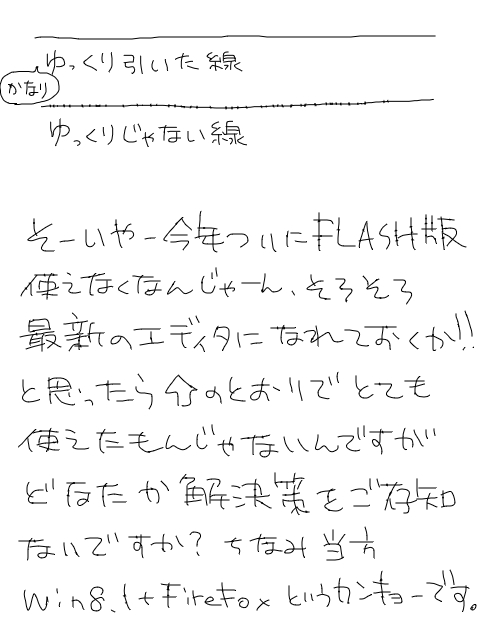 ゆっくり引いた線
かなり
ゆっくりじゃない線
そーいやー今年ついにFLASH版
使えなくなんじゃーん、そろそろ
最新のエディタになれておくか!!
と思ったら分のとおりでとても
使えたもんじゃないんですが
どなたか解決策をご存知
ないですか？ちなみ当方
Win8.1+FireFoxというカンキョーです。